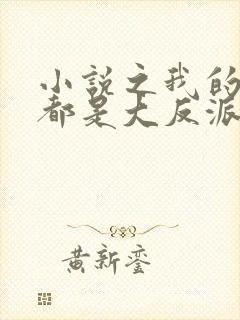 小説之我的
都是大反派
黄新銮